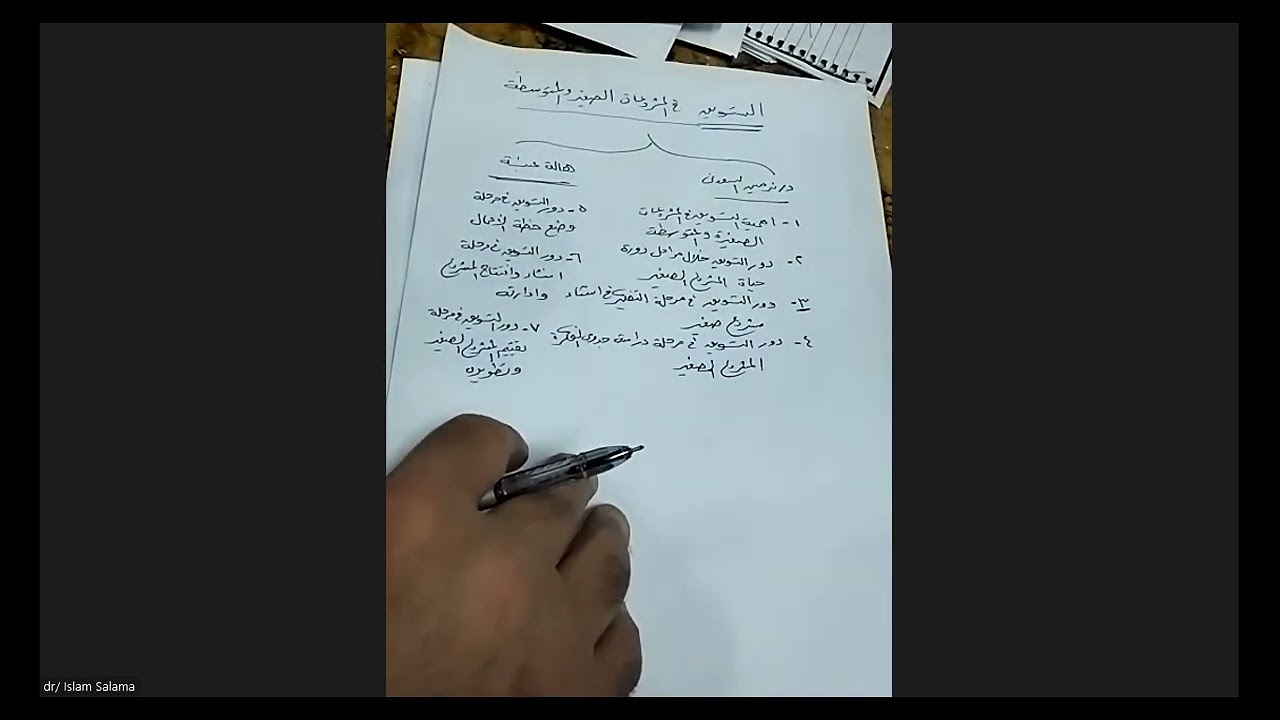 التسويق في المشروعات الصغيرة والمتوسطة
د/ نرمين السعدني
١- اهمية التسويق في المشروعات
الصغيرة والمتوسطة
٢- دور التسويق خلال مراحل دورة
حياة المشروع الصغير
٣- دور التسويق في مرحلة التفكير في انشاء
مشروع صغير
٤- دور التسويق في مرحلة دراسة جدوى الفكرة
المشروع الصغير
هالة عنبة
٥- دور التسويق في مرحلة
وضع خطة الأعمال
٦- دور التسويق في مرحلة
انشاء وافتتاح المشروع
وادارته
٧- دور التسويق في مرحلة
تقييم المشروع الصغير
وتطويره
dr/ Islam Salama